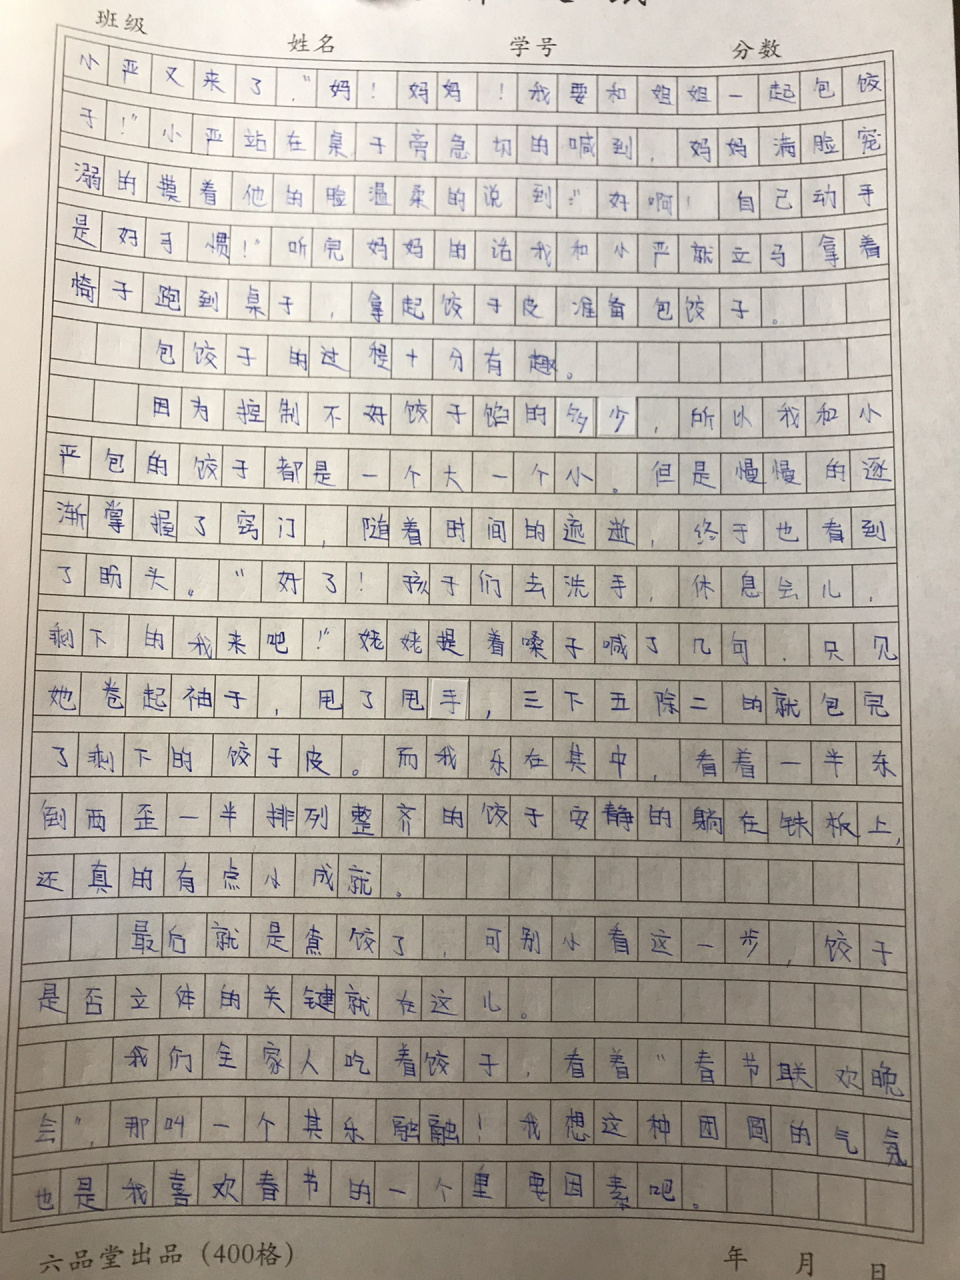 班级 姓名 学号 分数
小严又来了，“妈！妈妈！我要和姐姐一起包饺
子！”小严站在桌子旁急切的喊到，妈妈满脸宠
溺的摸着他的脸温柔的说到：“好啊！自己动手
是好手惯！”听完妈妈的话我和小严就立马拿着
椅子跑到桌子，拿起饺子皮准备包饺子。
包饺子的过程十分有趣。
因为控制不好饺子馅的多少，所以我和小
严包的饺子都是一个大一个小。但是慢慢的逐
渐掌握了窍门，随着时间的流逝，终于也看到
了盼头。“好了！孩子们去洗手，休息会儿，
剩下的我来吧！”姥姥提着嗓子喊了几句，只见
她卷起袖子，甩了甩手，三下五除二的就包完
了剩下的饺子皮。而我乐在其中，看着一半东
倒西歪一半排列整齐的饺子安静的躺在铁板上，
还真的有点小成就。
最后就是煮饺了，可别小看这一步，饺子
是否立体的关键就在这儿。
我们全家人吃着饺子，看着“春节联欢晚
会”，那叫一个其乐融融！我想这种团圆的气氛
也是我喜欢春节的一个重要因素吧。
六品堂出品（400格） 年 月 日